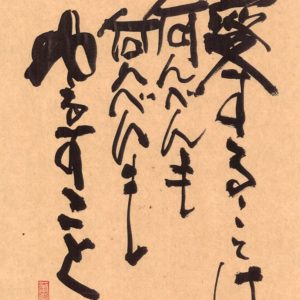 愛することは
何べんも
何べんも
ゆるすこと